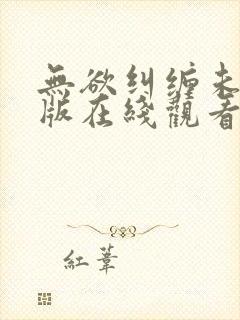 無欲糾纏未
版在綫觀看
紅葦